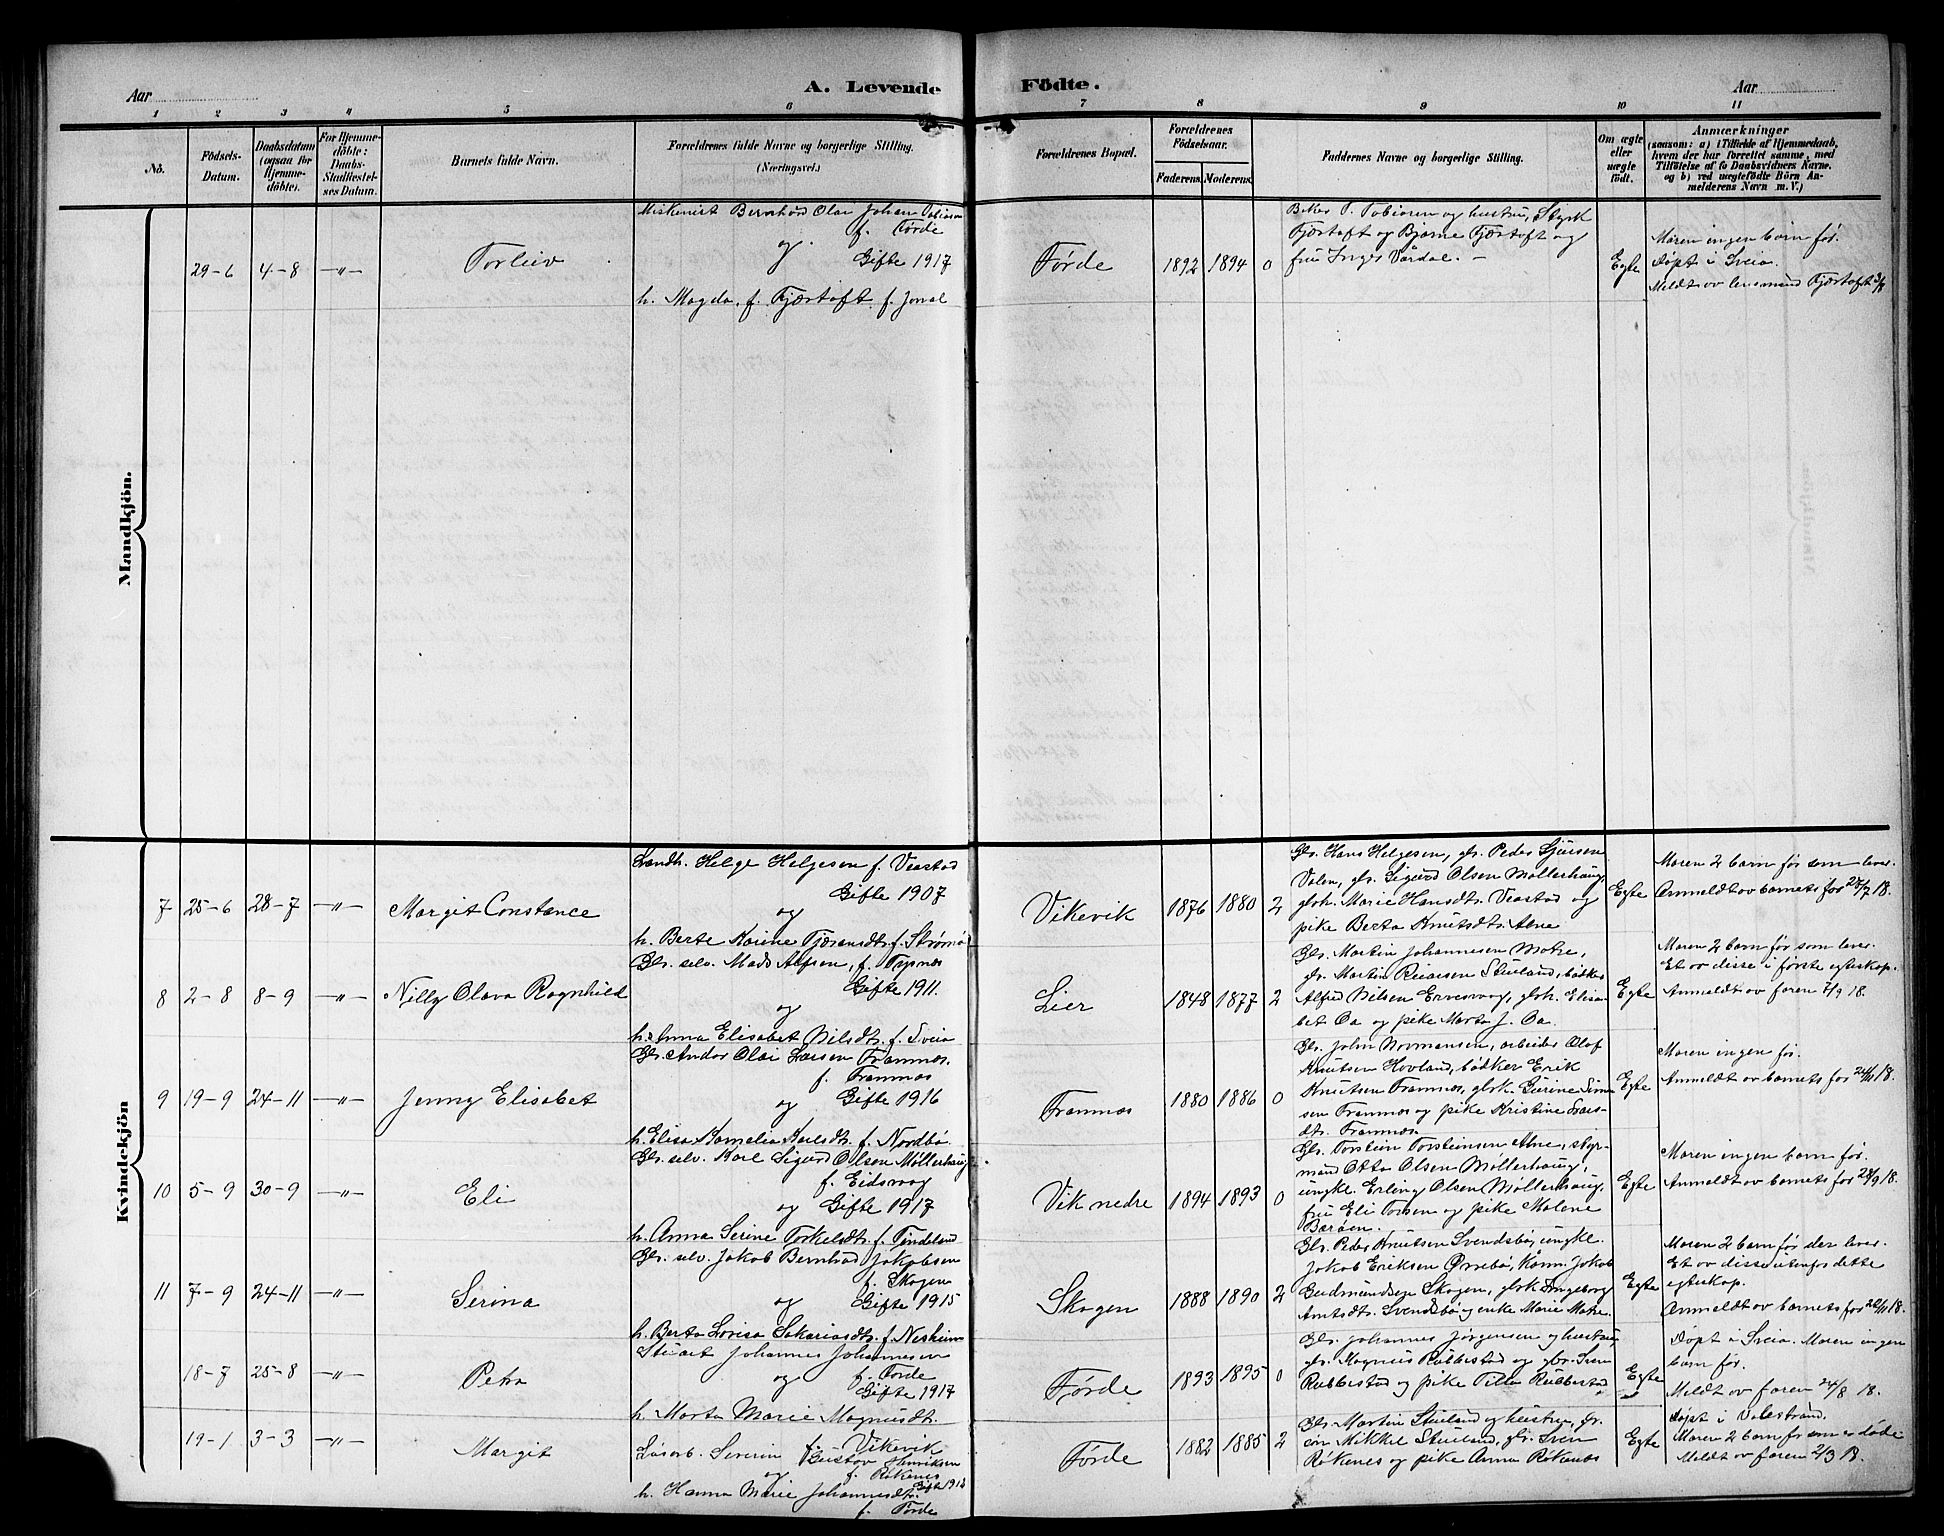 Aar
A. Levende
Födte.
Aar
1 2 3 4 5 6 7 8 9 10 11
No.
Födsels-
Datum.
Daabsdatum
(ogsaa for
Hjemme-
döbte).
For Hjemme-
döbte:
Daabs-
Stadfæstel-
ses Datum.
Barnets fulde Navn.
Forældrenes fulde Navne og borgerlige Stilling.
(Næringsvei.)
Forældrenes Bopæl.
Forældrenes
Födselsaar.
Faderens. Moderens.
Faddernes Navne og borgerlige Stilling.
Om ægte
eller
uægte
födt.
Anmærkninger
(saasom: a) i Tilfælde af Hjemmedaab,
hvem der har forrettet samme, med
Tilföielse af to Daabsvidners Navne.
og b) ved uægtefödte Börn An-
melderens Navn m. V.)
Mandkjön.
29-6 4-8 -"- Torleiv
Maskinist Bernhard Olai Johan Tobiasen
f. Førde
og Gifte 1917
h. Magda, f. Fjærtoft f. Jonal
Førde 1892 1894 0
Beker T. Tobiasen og hustru, Styrk
Fjærtoft og Bjarne Fjærtoft og
fru Inges Vårdal. -
Egte
Moren ingen barn før.
Døpt i Sveia.
Meldt av lensmand Fjærtoft 3/8
Kvindekjön
7 25-6 28-7 -"- Margit Constance
Landh. Helge Helgesen f. Veastad
Gifte 1907
og
h. Berte Karine Fjæransdtr. f. Strømø
Vikevik 1876 1880 2
Gbr. Hans Helgesen, gbr. Peder Sjursen
Valen, gbr. Sigurd Olsen Møllerhaug
gbrk. Marie Hansdtr. Veastad og
pike Berta Knutsdtr. Alne
Egte
Moren 2 barn før som lever.
Anmeldt av barnets far 28/7 18.
8 2-8 8-9 -"- Nilly Olava Ragnhild
Gbr. selv. Mads Alfsen, f. Trynæs
Gifte 1911.
og
h. Anna Elisabet Nilsdtr. f. Sveia
Lier 1848 1877 2
Gbr. Martin Johannesen Matre,
gbr. Martin Reiarsen Stuland, bødker
Alfred Nilsen Ervesvaag, gbrk. Elisa-
bet Oa og pike Marta J. Oa.
Egte
Moren 2 barn før som lever.
Et av disse i første egteskap.
Anmeldt av faren 7/9 18.
9 19-9 24-11 -"- Jenny Elisabet
Gbr. Andor Olai Larsen Framnæs.
f. Framnæs
Gifte 1916
og
h. Elisa Kornelia Karlsdtr. f. Nordbø.
Framnæs 1880 1886 0
Gbr. John Normansen, arbeider Olaf
Knutsen Hovland, bødker Erik
Knutsen Framnæs, gbrk. Gurine Simon-
sen Framnæs og pike Kristine Lars-
dtr. Framnæs.
Egte
Moren ingen før.
Anmeldt av barnets far 24/11 18.
10 5-9 30-9 -"- Eli
Gbr. selv. Karl Sigurd Olsen Møllerhaug
f. Eidsvaag
og Gifte 1917
h. Anna Serine Torkelsdtr. f. Tindeland
Vik nedre 1894 1893 0
Gbr. Torstein Torsteinsen Alne, styr-
mand Otto Olsen Møllerhaug,
ungk. Erling Olsen Møllerhaug,
fru Eli Torsen og pike Malene
Barøen.
Egte
Moren ingen barn før.
Anmeldt av barnets far 28/9 18.
11 7-9 24-11 -"- Serina
Gbr. selv Jakob Bernhard Jakobsen
f. Skogen
og Gifte 1915
h. Berta Lovisa Sakariasdtr. f. Nesheim
Skogen 1888 1890 2
Gbr. Peder Knutsen Svendsbø, ungk.
Jakob Eriksen Ørrebø, Kårm. Jakob
Gudmundsen Skogen, gbrk. Ingeborg
Amtsdtr. Svendsbø og enke Marie Matre.
Egte
Moren 2 barn før der lever.
Et av disse utenfor dette
egteskap.
Anmeldt av barnets far 22/11 18.
18-7 25-8 -"- Petra
Stuart Johannes Johannesen
og f. Førde
Gifte 1917
h. Marta Marie Magnusdtr.
f. Vikevik
Førde 1893 1895 0
Gbr. Johannes Jørgensen og hustru,
gbr. Magnus Rabbestad og gbr. Sven
Rabbestad og pike Tilla Rabbestad
Egte
Døpt i Sveia. Moren ingen
barn før.
Meldt av faren 24/8 18.
19-1 3-3 -"- Margit
Løsarb. Severin Gustav Henriksen
og f. Røkenes
Gifte 1912
h. Hanna Marie Johannesdtr.
f. Førde
Førde 1882 1885 2
Gbr. Martin Stuland og hustru, gbr.
søn Mikkel Stuland, gbr. Sven
Røkenes og pike Anna Røkenes
Egte
Døpt i Valestrand.
Moren 2 barn før som er døde
Meldt av faren 2/3 18.